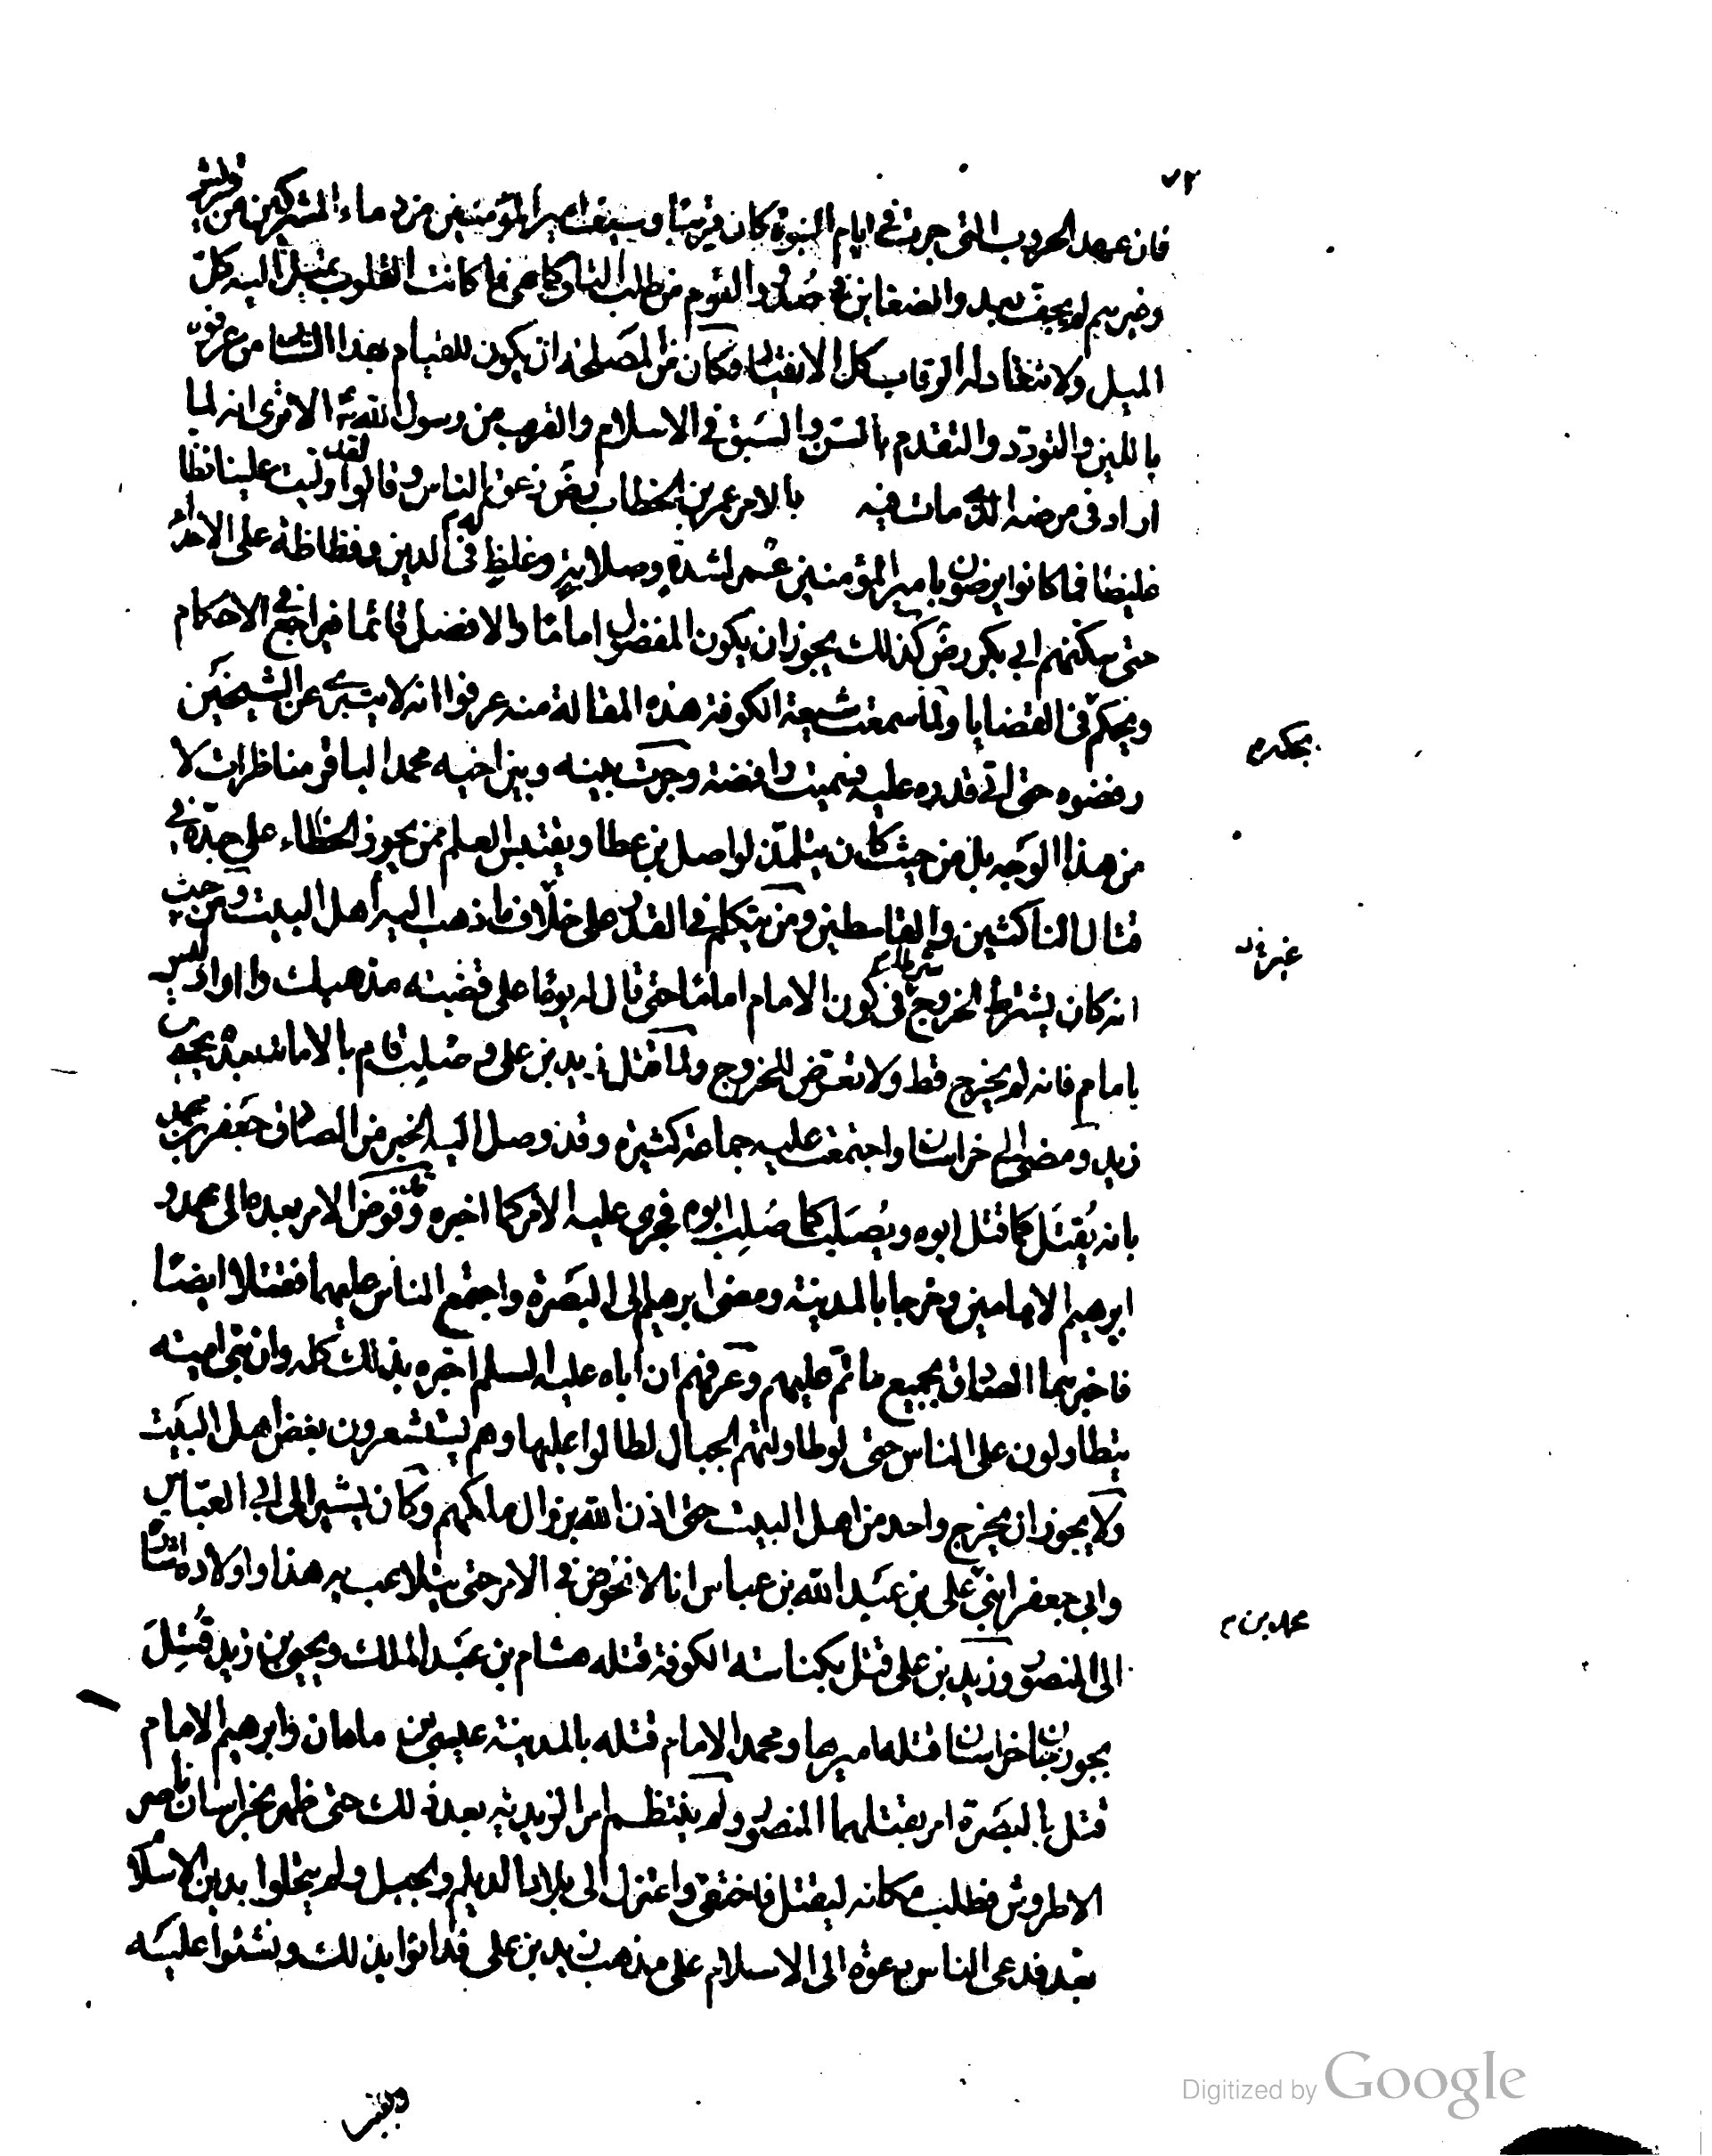 ٧٢
فان عهد الحروب التى جرت فى ايام النبوة كان قريبا وسيف امير المؤمنين من دماء المشركين من قريش
وغيرهم لم يجف بعد والضغاين فى صدور القوم من طلب الثار كما هى فما كانت القلوب تميل اليه كل
الميل ولا تنقاد له الرقاب كل الانقياد فكان من المصلحة ان يكون القيام بهذا الشان من عرفوه
باللين والتودد والتقدم بالسن والسبق فى الاسلام والقرب من رسول الله الا ترى انه لما
اراد فى مرضه الذى مات فيه بالامر عمر بن الخطاب رضى زعق الناس وقالوا لقد وليت علينا فظا
غليضا فما كانوا يرضون بامير المؤمنين عمر لشدة وصلابة وغلظ له فى الدين وفظاظة على الاعداء
حتى سكنهم ابى بكر رضى كذلك يجوز ان يكون المفضول اماما والافضل قائما فيراجع فى الاحكام
ويحكم فى القضايا ولما سمعت شيعة الكوفة هذه المقالة منه عرفوا انه لا يتبرى عن الشيخين
بحكمه
رفضوه حتى اتى قدره عليه فسميت رافضة وجرت بينه وبين اخيه محمد الباقر مناظرات لا
من هذا الوجه بل من حيث كان يتلمذ لواصل بن عطا ويقتبس العلم ممن يجوز الخطاء على جده فى
قتال الناكثين والقاسطين ومن يتكلم فى القدر على خلاف ما ذهب اليه اهل البيت ومن حيث
انه كان يشترط الخروج شرطا فى كون الامام اماما حتى قال له يوما على قضيته مذهبك والدك ليس
بامام فانه لم يخرج قط ولا تعرض للخروج ولما قتل زيد بن على وصلب قام بالامامة بعده يحيى بن
زيد ومضى الى خراسان واجتمعت عليه جماعة كثيرة وقد وصل اليه الخبر من الصادق جعفر بن محمد
بانه يقتل كما قتل ابوه ويصلب كما صلب ابوه فجرى عليه الامر كما اخبره وقد فوض الامر بعده الى محمد و
ابرهيم الامامين وخرجا بالمدينة ومضى ابرهيم الى البصرة واجتمع الناس عليهما فقتلا ايضا
فاخبرهما الصادق بجميع ما تم عليهم وعرفهم ان اباه عليه السلم اخبره بذلك كله وان بنى اميه
يتطاولون على الناس حتى لو طاولتهم الجبال لطالوا عليها وهم يستشعرون بغض اهل البيت
ولا يجوز ان يخرج واحد من اهل البيت حتى اذن الله بزوال ملكهم وكان يشير الى ابى العباس
وابى جعفر ابنى على بن عبد الله بن عباس انا لا نخوض فى الامر حتى يتلاعب به هذا واولاده اشارة
محمد بن م
الى المنصور وزيد بن على قتل بكناسه الكوفة قتله هشام بن عبد الملك ويحيى بن زيد قتل
بجوزجان خراسان قتله اميرها ومحمد الامام قتله بالمدينة عيسى بن ماهان وابرهيم الامام
قتل بالبصرة امر بقتلهما المنصور ولم ينتظم امر الزيديه بعد ذلك حتى ظهر بخراسان ناصر
الاطروش فطلب مكانه ليقتل فاختفى واعتزل الى بلاد الديلم والجبل ولم يتحلوا بدين الاسلام
بعد فدعى الناس دعوة الى الاسلام على مذهب زيد بن على فدانوا بذلك ونشئوا عليه
Digitized by Google